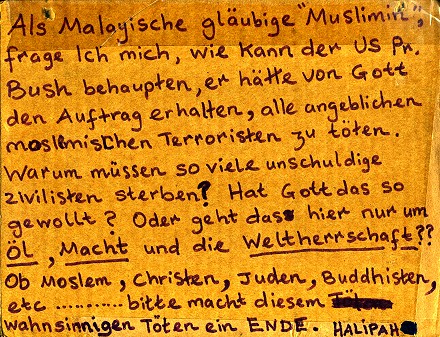 Als Malayische gläubige "Muslimin",
frage Ich mich, wie kann der US Pr.
Bush behaupten, er hätte von Gott
den Auftrag erhalten, alle angeblichen
moslemischen Terroristen zu töten.
Warum müssen so viele unschuldige
zivilisten sterben? Hat Gott das so
gewollt? Oder geht dass hier nur um
Öl, Macht und die Weltherrschaft??
Ob Moslem, Christen, Juden, Buddhisten,
etc .......... bitte macht diesem
wahnsinnigen Töten ein ENDE. HALIPAH